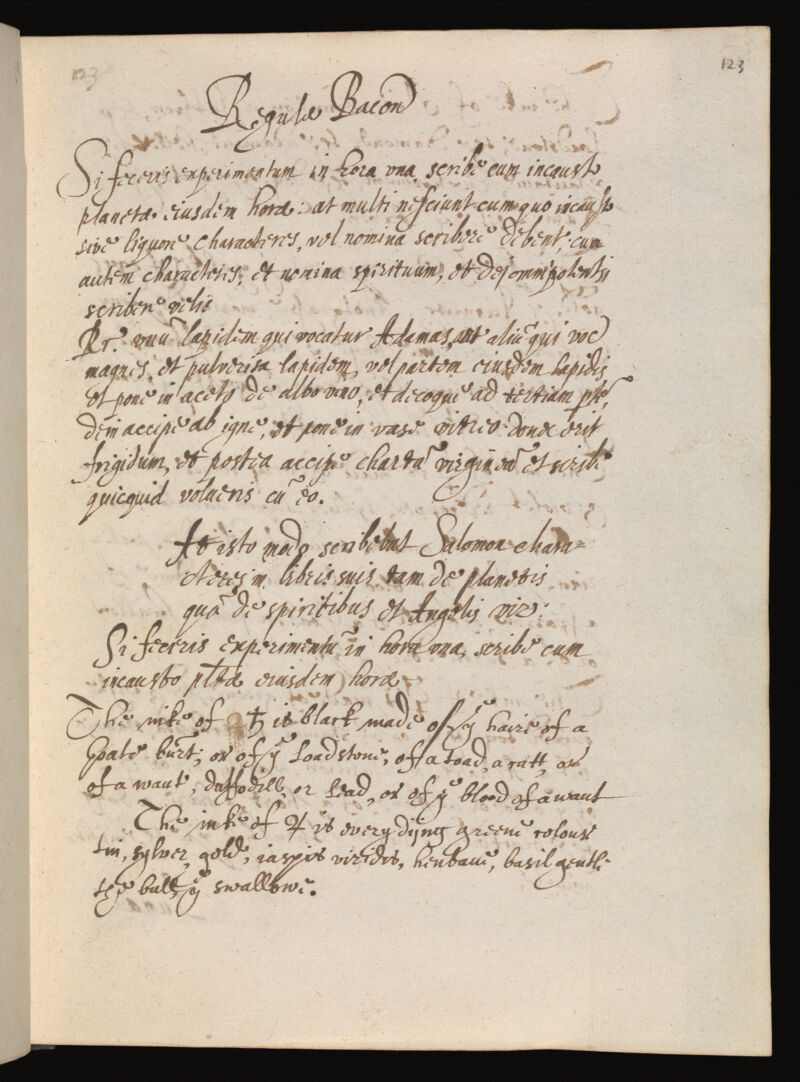 123
123
Regulæ Bacon
Si feceris experimentum in hora una, scribe cum incausto
planetæ eiusdem horæ: at multi nesciunt cum quo incausto
sive liquore characteres, vel nomina scribere debent, cum
autem characteres, et nomina spirituum, et dei omnipotentis
scribere velis
Rr. unū lapidem qui vocatur Adamas, aut aliū qui voc
magnes, et pulverisa lapidem, vel partem eiusdem lapidis
et pone in aceto de albo vino, et decoque ad tertiam pte,
dein accipe ab igne, et pone in vase vitreo donec erit
frigidum, et postea accipe chartā virgineā et scribe
quicquid volueris cū eo.
At isto modo scribebat Salomon chara-
cteres in libris suis tam de planetis
quā de spiritibus et Angelis viz:
Si feceris experimentū in hora una, scribe cum
incausto pltæ eiusdem horæ
The inke of ♄ is black made of yͤ haire of a
Goate burt; or of yͤ Loadstone, of a toad, a catt, or
of a want, daffodill, or lead, or of yͤ blood of a want
The inke of ♃ is every dijng greene colour
tin, sylver, gold, iaspis viridis, henbane, basil gentle
the bull, yͤ swallowe.